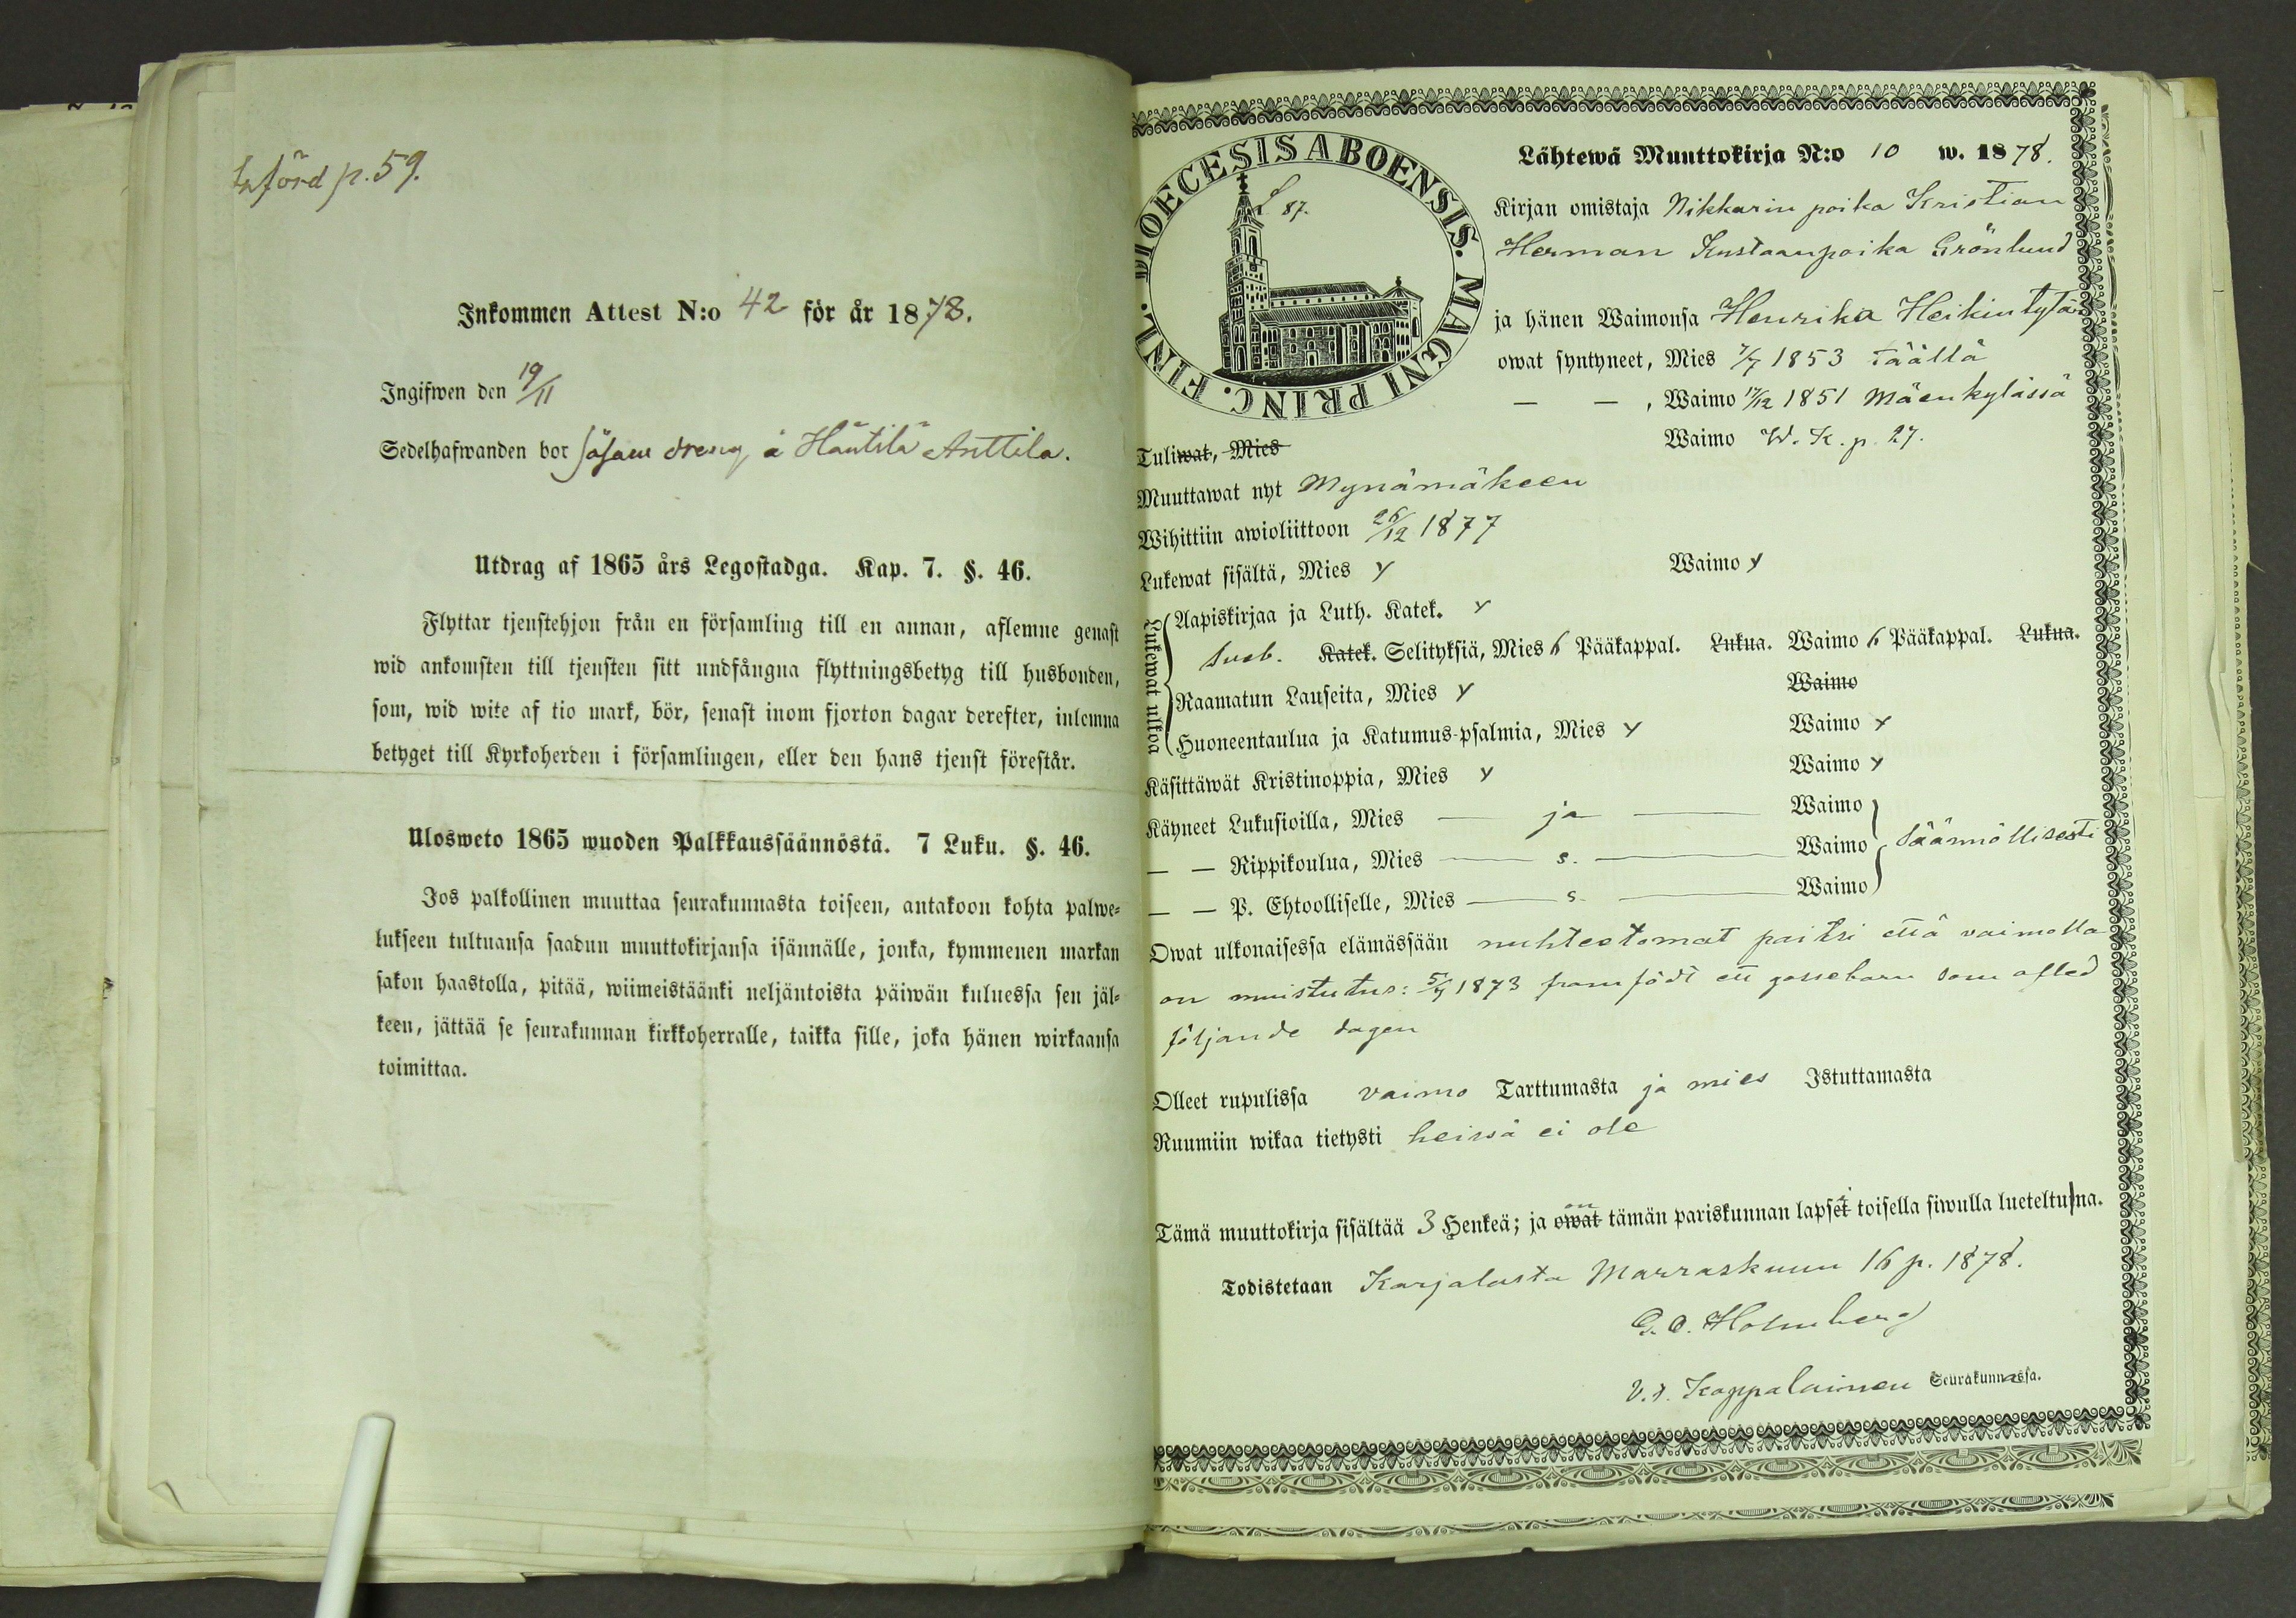 Införd p. 59.
Inkommen Attest N:o 42 för år 1878.
Ingifwen den 19/11
Sedelhafwanden bor såsom dreng å Häntilä Anttila.
Utdrag af 1865 års Legostadga. Kap. 7. §. 46.
Flyttar tjenstehjon från en församling till en annan, aflemne genast
wid ankomsten till tjensten sitt undfångna flyttningsbetyg till husbonden,
som, wid wite af tio mark, bör, senast inom fjorton dagar derefter, inlemna
betyget till Kyrkoherden i församlingen, eller den hans tjenst förestår.
Ulosweto 1865 wuoden Palkkaussäännöstä. 7 Luku. §. 46.
Jos palkollinen muuttaa seurakunnasta toiseen, antakoon kohta palwe-
lukseen tultuansa saadun muuttokirjansa isännälle, jonka, kymmenen markan
sakon haastolla, pitää, wiimeistäänki neljäntoista päiwän kuluessa sen jäl-
keen, jättää se seurakunnan kirkkoherralle, taikka sille, joka hänen wirkaansa
toimittaa.
DIOECESIS ABOENSIS. MAGNI PRINC. FINL.
L 87.
Lähtewä Muuttokirja N:o 10 w. 1878.
Kirjan omistaja Nikkarin poika Kristian
Herman Kustaanpoika Grönlund
ja hänen Waimonsa Henrika Heikintytär
owat syntyneet, Mies 7/7 1853 täällä
— — , Waimo 17/12 1851 Mäenkylässä
Tuliwat, Mies Waimo W. K. p. 27.
Muuttawat nyt Mynämäkeen
Wihittiin awioliittoon 26/12 1877
Lukewat sisältä, Mies y Waimo y
Lukewat ulkoa
Aapiskirjaa ja Luth. Katek. y
Sveb. Katek. Selityksiä, Mies 6 Pääkappal. Lukua. Waimo 6 Pääkappal. Lukua.
Raamatun Lauseita, Mies y Waimo
Huoneentaulua ja Katumus-psalmia, Mies y Waimo y
Käsittäwät Kristinoppia, Mies y Waimo y
Käyneet Lukusioilla, Mies — ja — Waimo
— — Rippikoulua, Mies — s. — Waimo säännöllisesti
— — P. Ehtoolliselle, Mies — s. — Waimo
Owat ulkonaisessa elämässään nuhteetomat paitsi että vaimolla
on muistutus: 5/7 1873 framfödt ett gossebarn som afled
följande dagen
Olleet rupulissa vaimo Tarttumasta ja mies Istuttamasta
Ruumiin wikaa tietysti heissä ei ole
Tämä muuttokirja sisältää 3 Henkeä; ja owat on tämän pariskunnan lapset i toisella siwulla lueteltuina.
Todistetaan Karjalasta Marraskuun 16 p. 1878.
G. O. Holmberg
V. t. Kappalainen Seurakunnassa.